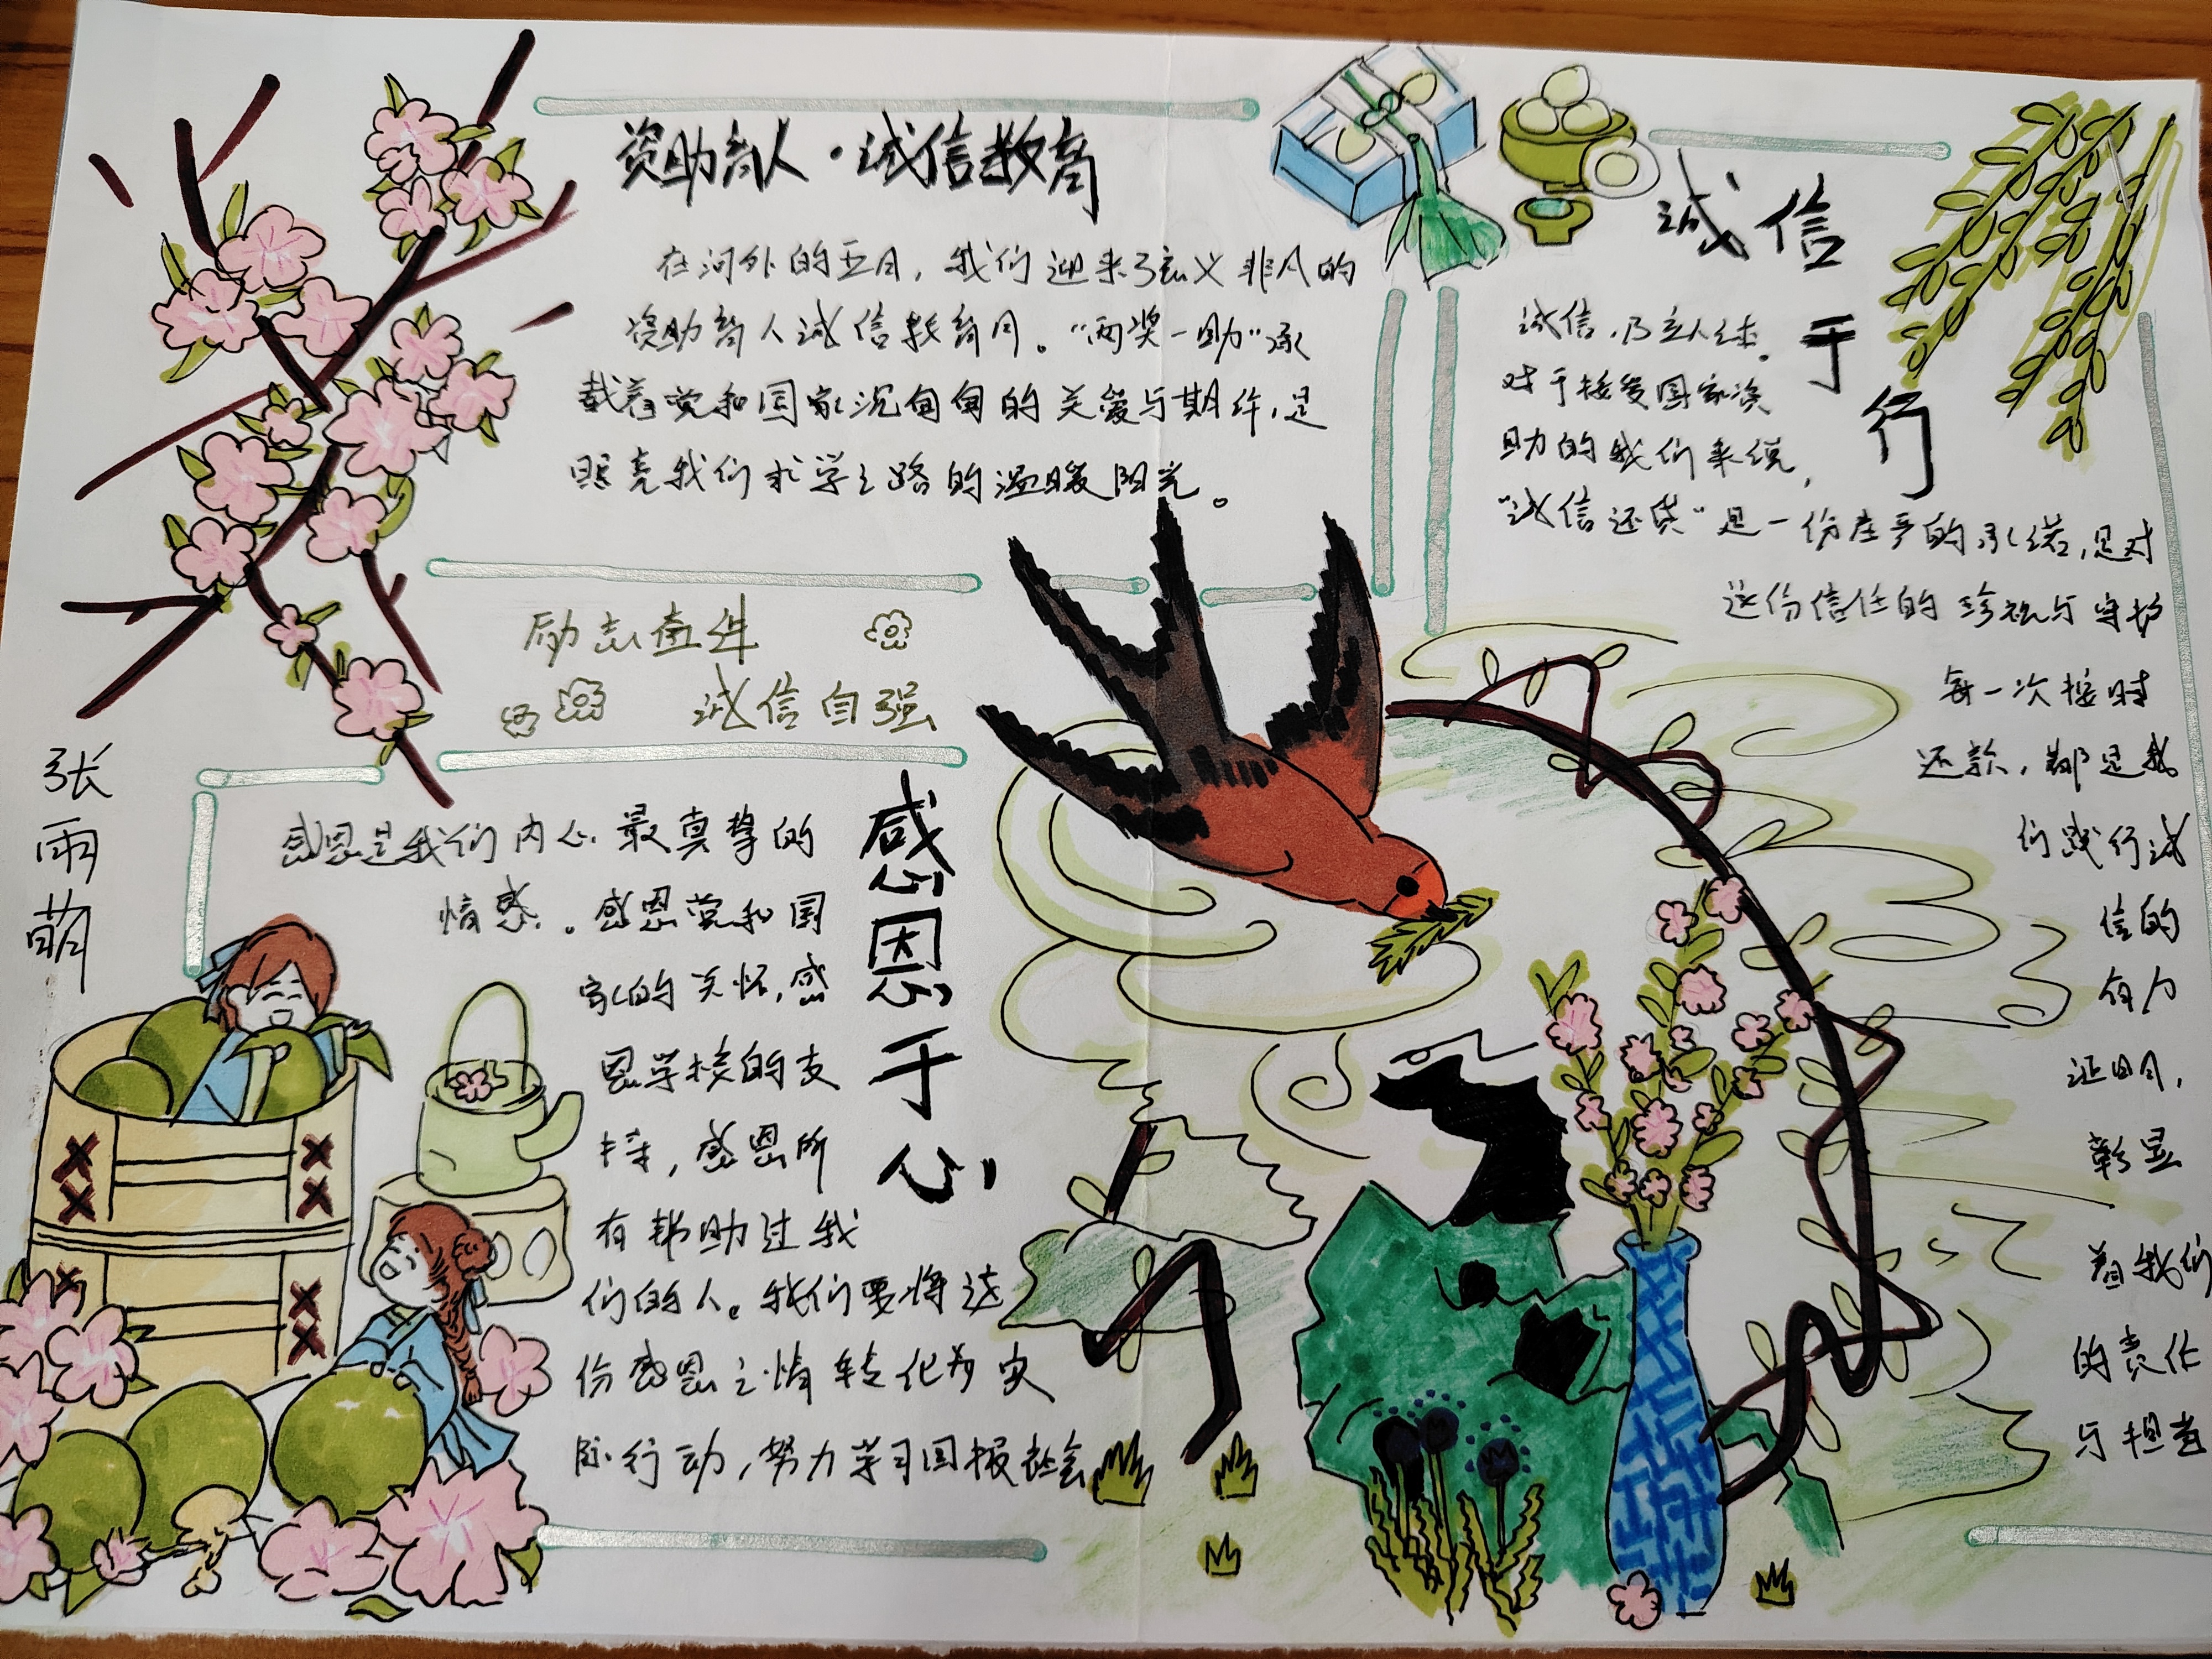 资助育人·诚信教育
在河外的五月，我们迎来了意义非凡的
资助育人诚信教育月。“两奖一助”承
载着党和国家沉甸甸的关爱与期许，是
照亮我们求学之路的温暖阳光。
诚信于行
诚信，乃立人之本。
对于接受国家资
助的我们来说，
“诚信还贷”是一份庄严的承诺，是对
这份信任的珍视与守护
每一次按时
还款，都是我
们践行诚
信的
有力
证明，
彰显
着我们
的责任
与担当
励志
诚信自强
张雨萌
感恩于心
感恩是我们内心最真挚的
情感。感恩党和国
家的关怀，感
恩学校的支
持，感恩所
有帮助过我
们的人。我们要将这
份感恩之情转化为实
际行动，努力学习回报社会